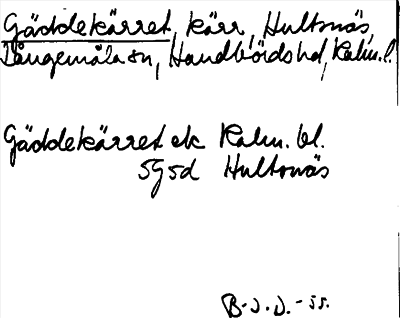 Gäddekärret, kärr, Hultsnäs,
Långemåla sn, Handbörds hd, Kalm. l.
Gäddekärret ek Kalm. bl.
5g5d Hultsnäs
B.J.D. -55.